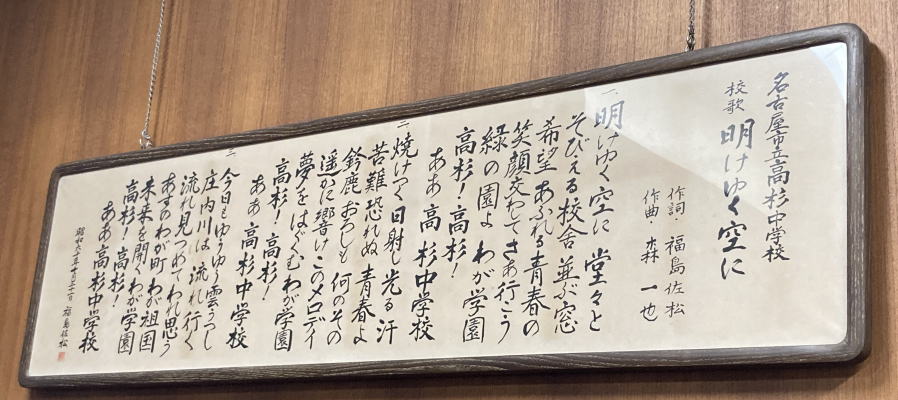 名古屋市立高杉中学校
校歌 明けゆく空に
作詞・福島佐松
作曲・森一也
一、明けゆく空に 堂々と
そびえる校舎 並ぶ窓
希望あふれる青春の
笑顔交わしてさあ行こう
緑の園よ わが学園
高杉!高杉!
ああ 高杉中学校
二、焼けつく日射し 光る汗
苦難恐れぬ 青春よ
鈴鹿おろしも 何のその
遥かに響け このメロディ
夢をはぐくむ わが学園
高杉!高杉!
ああ 高杉中学校
三、今日もゆうゆう 雲うつし
庄内川は 流れ行く
流れ見つめて われ思う
あすのわが町 わが祖国
未来を開く わが学園
高杉!高杉!
ああ 高杉中学校
昭和六十年十月三十一日 福島佐松